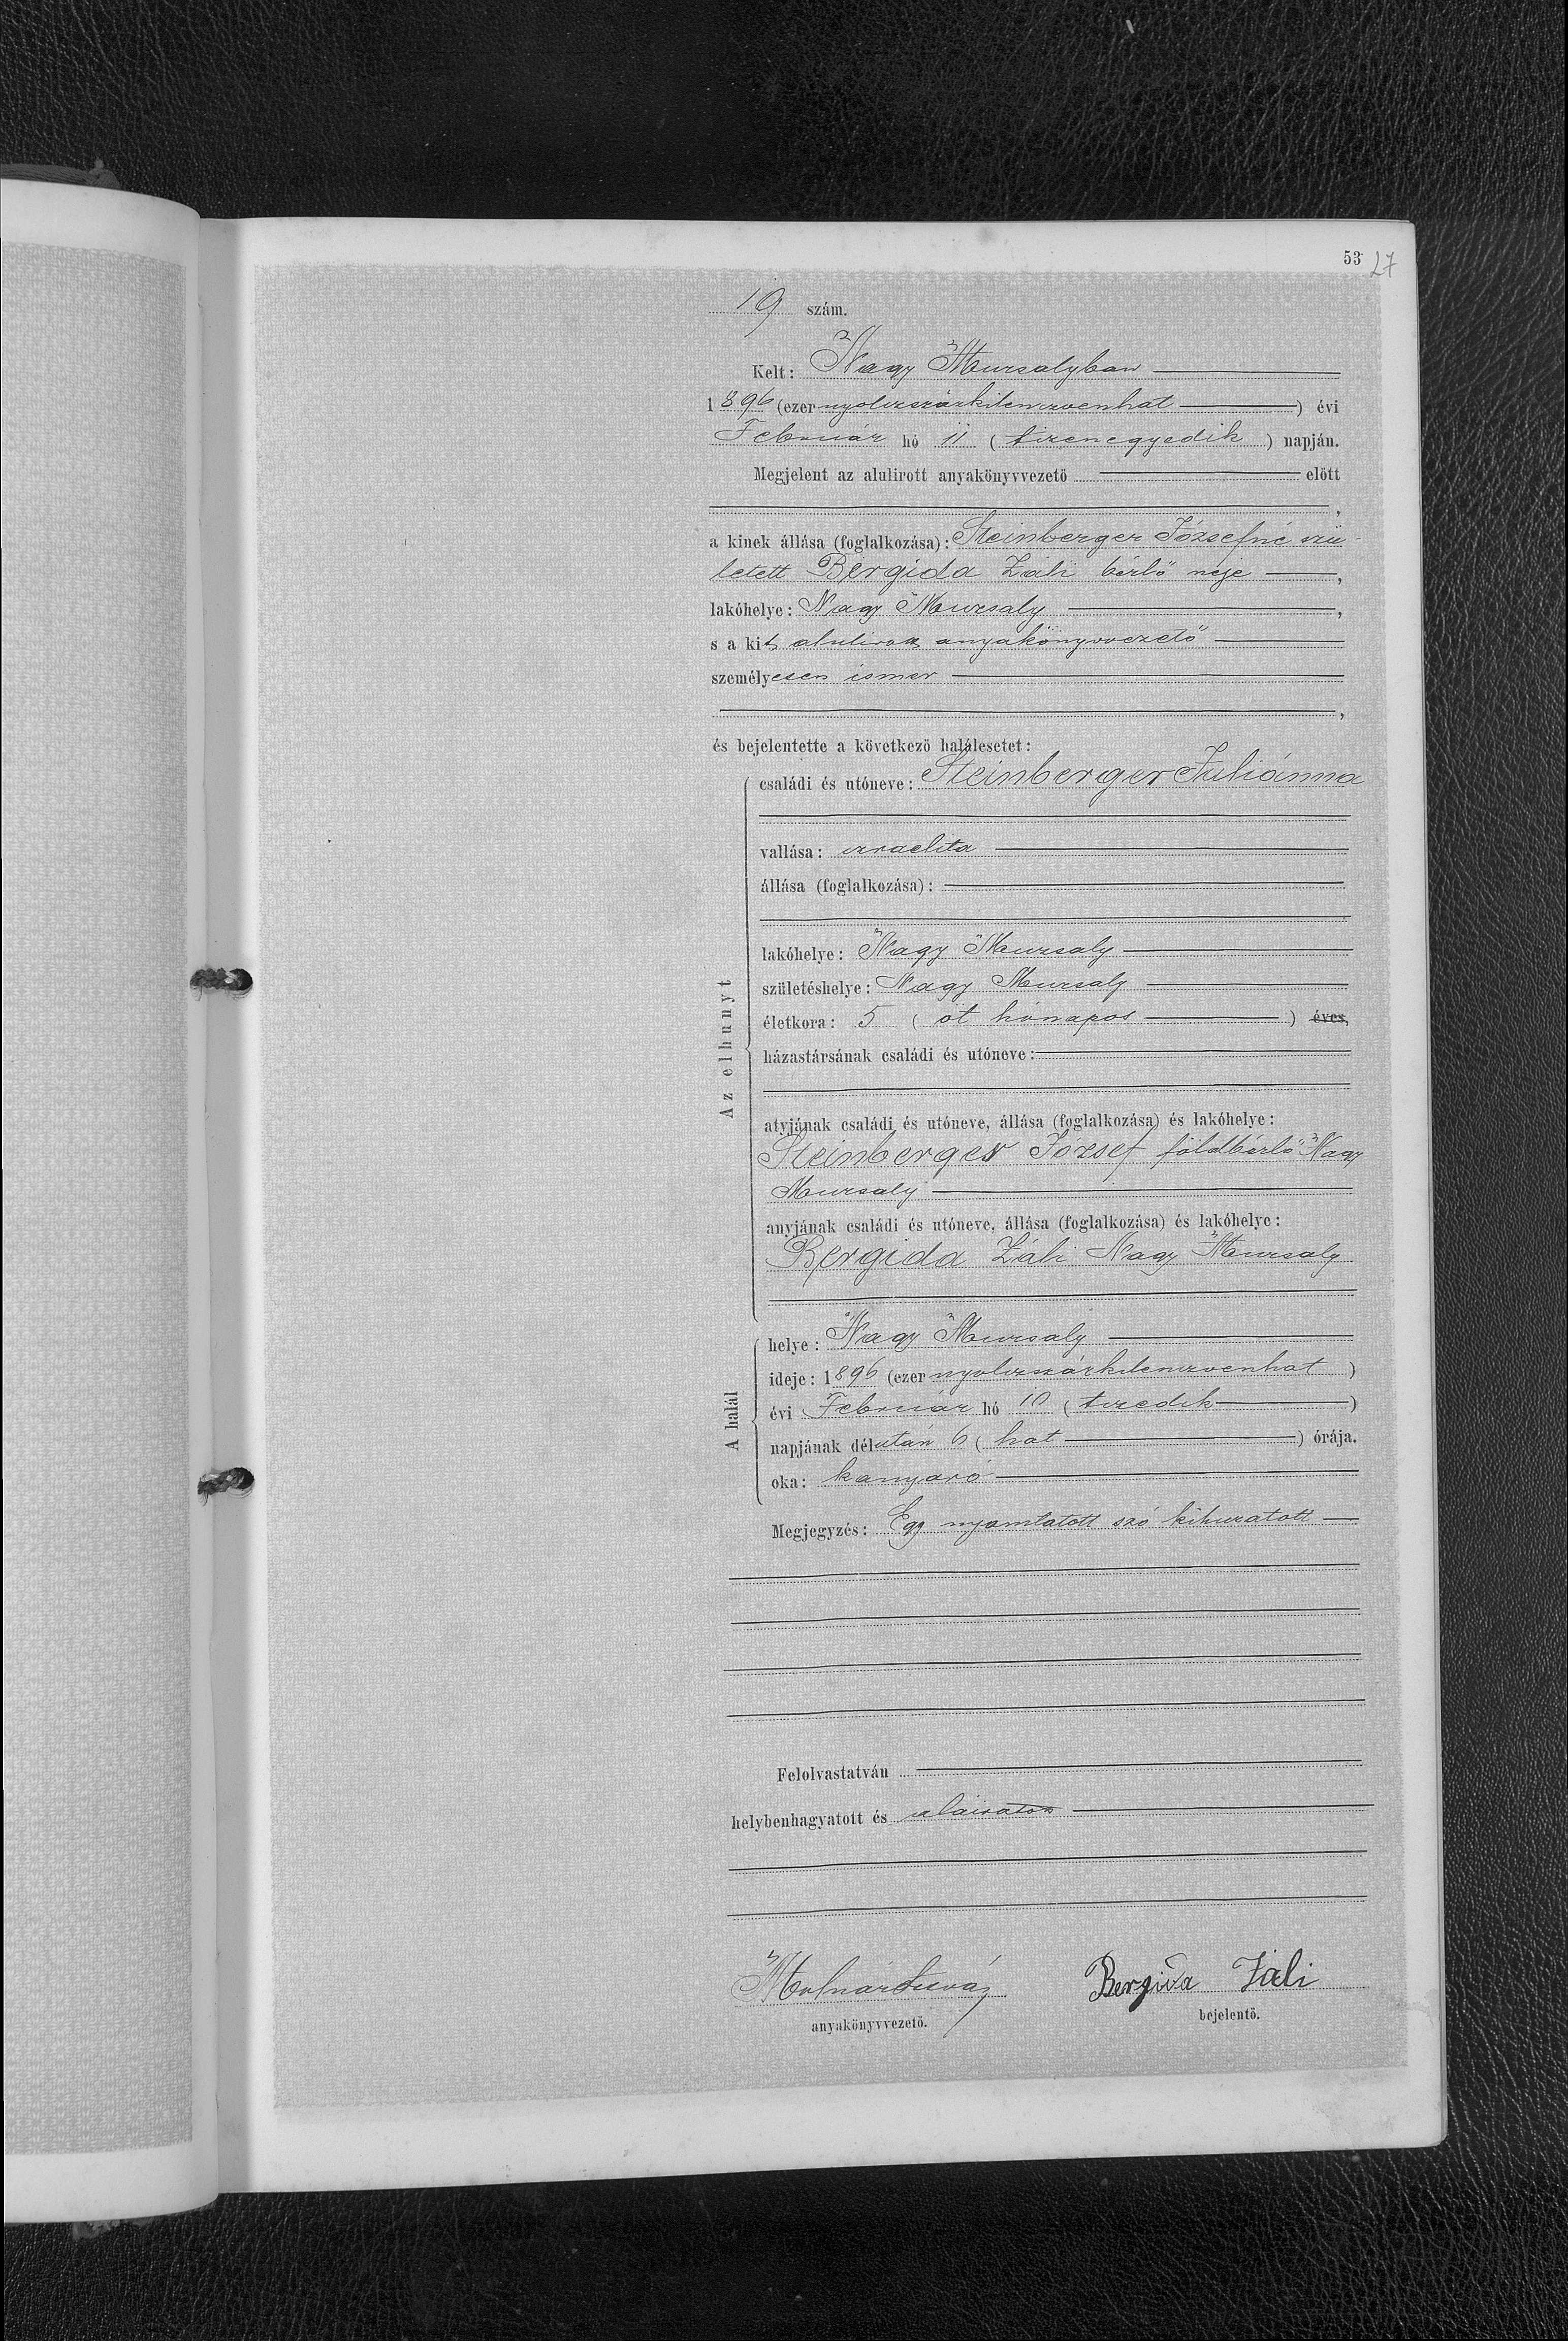 53 27
19 szám.
Kelt: Nagy Muzsalyban
1896 (ezer nyolczszázkilenczvenhat) évi
Február hó 11 (tizenegyedik) napján.
Megjelent az alulirott anyakönyvvezető előtt
,
a kinek állása (foglalkozása): Steinberger Józsefné szü-
letett Bergida Záli bérlő neje,
lakóhelye: Nagy Muzsaly,
s a kit alulirott anyakönyvvezető
személyesen ismer
,
és bejelentette a következő halálesetet:
Az elhunyt
családi és utóneve: Steinberger Juliánna
vallása: izraelita
állása (foglalkozása):
lakóhelye: Nagy Muzsaly
születéshelye: Nagy Muzsaly
életkora: 5 (öt hónapos) éves,
házastársának családi és utóneve:
atyjának családi és utóneve, állása (foglalkozása) és lakóhelye:
Steinberger József földbérlő Nagy
Muzsaly
anyjának családi és utóneve, állása (foglalkozása) és lakóhelye:
Bergida Záli Nagy Muzsaly
A halál
helye: Nagy Muzsaly
ideje: 1896 (ezer nyolczszázkilenczvenhat)
évi Február hó 10 (tizedik)
napjának délután 6 (hat) órája.
oka: kanyaró
Megjegyzés: Egy nyomtatott szó kihuzatott
Felolvastatván
helybenhagyatott és aláiratott
Molnár Bergida Záli
anyakönyvvezető. bejelentő.